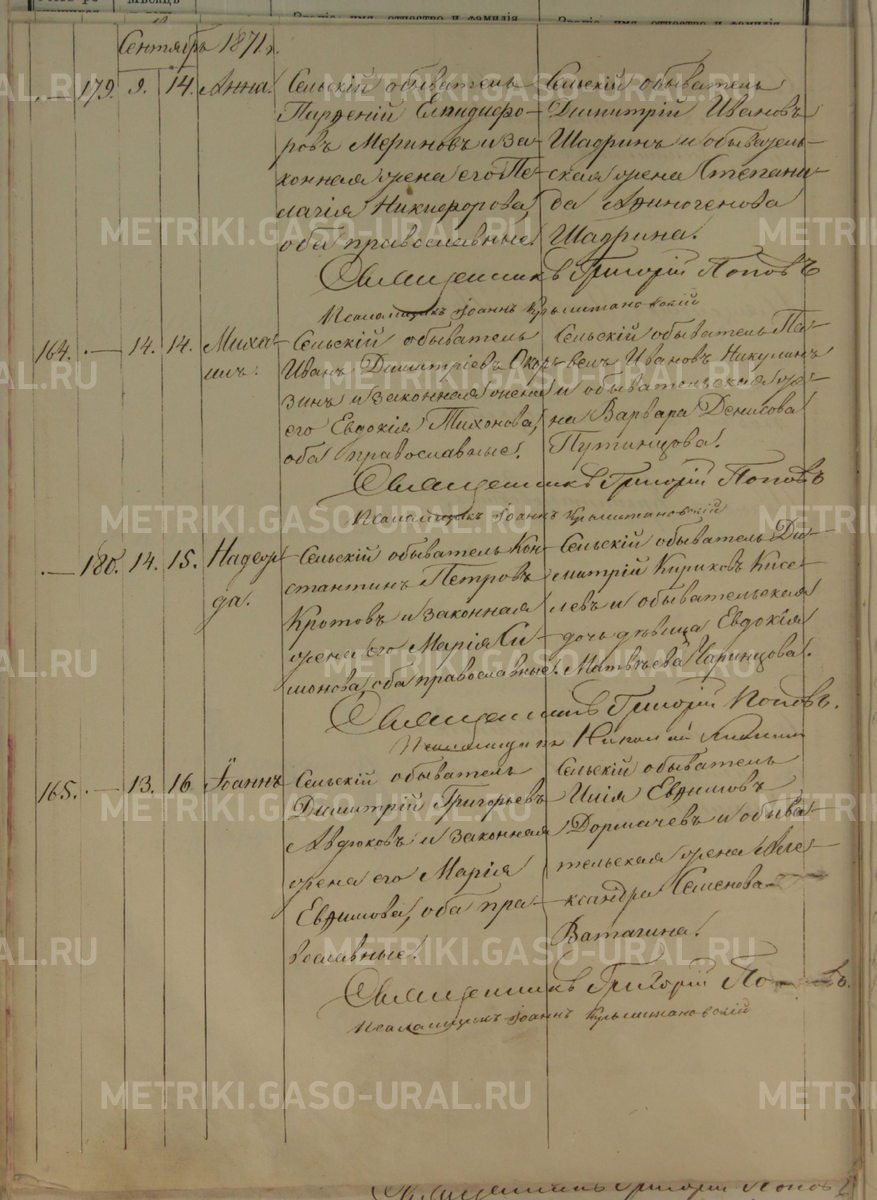 Званіе, имя, отчество и фамилія
Званіе, имя, отчество и фамилія
Сентябрь 1871 г.
179. 9. 14. Анна. Сельскій обыватель
Парѳеній Елпидифо-
ровъ Мериновъ и за-
конная жена его Пе-
лагія Никифорова,
оба православные.
Сельскій обыватель
Димитрій Ивановъ
Шадринъ и обыватель-
ская жена Степани-
да Анногенова
Шадрина.
Священникъ Григорій Поповъ
Псаломщикъ Іоаннъ Крыжановскій
164. 14. 14. Миха-
илъ.
Сельскій обыватель
Иванъ Димитріевъ Окоре-
зинъ и законная жена
его Евдокія Тихонова,
оба православные.
Сельскій обыватель Па-
велъ Ивановъ Никулинъ
и обывательская же-
на Варвара Денисова
Путинцова.
Священникъ Григорій Поповъ
Псаломщикъ Іоаннъ Крыжановскій
180. 14. 15. Надеж-
да.
Сельскій обыватель Кон-
стантинъ Петровъ
Кротовъ и законная
жена его Марія Си-
монова, оба православные.
Сельскій обыватель Ди-
митрій Кириковъ Кисе-
левъ и обывательская
дочь дѣвица Евдокія
Матвѣева Чаринцова.
Священникъ Григорій Поповъ.
Псаломщикъ Николай
165. 13. 16 Іоаннъ
Сельскій обыватель
Димитрій Григорьевъ
Авдюковъ и законная
жена его Марія
Евѳимова, оба пра-
вославные.
Сельскій обыватель
Илія Евѳимовъ
Дормачевъ и обыва-
тельская жена Але-
ксандра Семенова
Ватагина.
Священникъ Григорій Поповъ.
Псаломщикъ Іоаннъ Крыжановскій
Священникъ Григорій Поповъ
METRIKI.GASO-URAL.RU